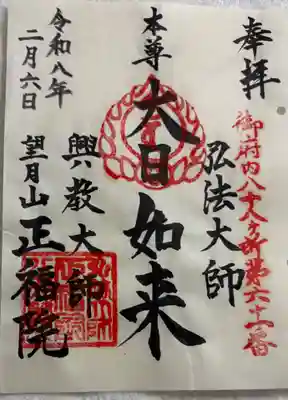 奉拝
御府内八十八ヶ所第六十一番
弘法大師
本尊 大日如来
興教大師
望月山 正福院
令和八年
二月六日